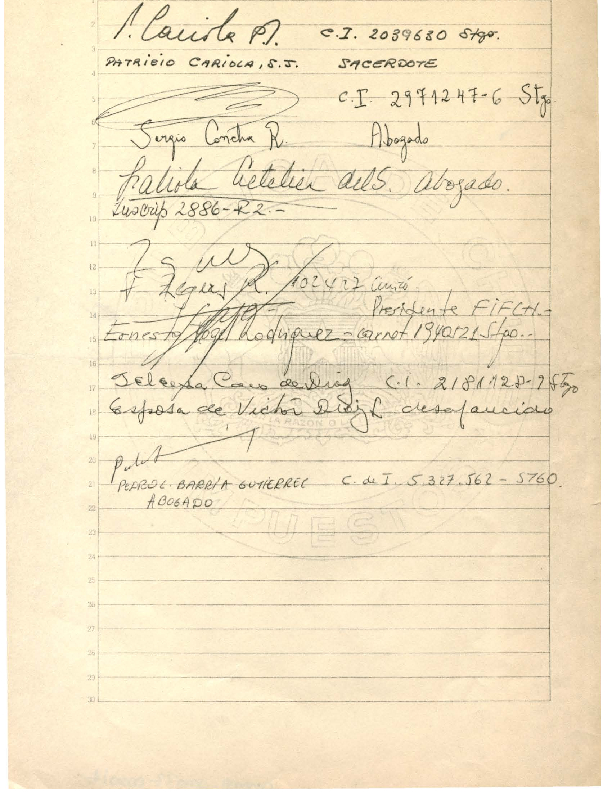 P. Cariola S.J. C.I. 2039630 Stgo.
PATRICIO CARIOLA, S.J. SACERDOTE
C.I. 2971247-6 Stgo
Sergio Concha R. Abogado
Fabiola Letelier del S. Abogado.
Inscrip 2886-R2.-
F Reyes R. 102427
Presidente FIFCH.-
Ernesto Vogel Rodriguez - carnet 1940121 Stgo.-
Selenisa Caro de Diaz C.I. 2181128-9 Stgo
Esposa de Victor Diaz L. desaparecido
LA RAZON O LA
PEDRO L. BARRÍA GUTIERREZ C. de I. 5.327.562 - STGO.
ABOGADO